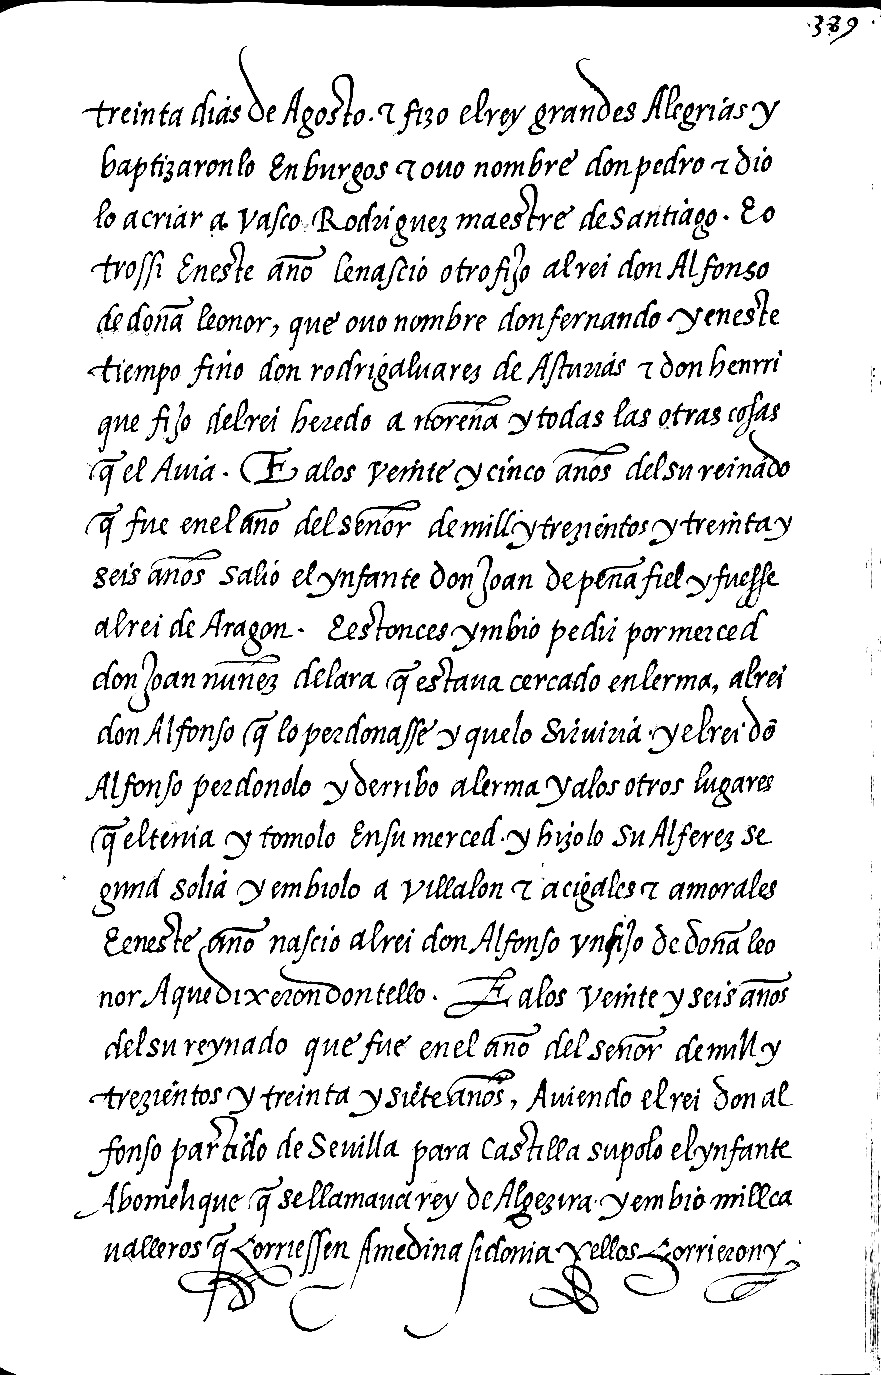 389
treinta dias de Agosto. & fizo el rey grandes Alegrias y
baptizaronlo En burgos & ouo nombre don pedro & dio
lo a criar a Vasco Rodriguez maestre de Santiago. E o
trossi Eneste año lenascio otro fijo al rei don Alfonso
de doña leonor, que ouo nombre don fernando y eneste
tiempo fino don rodrigaluarez de Asturias & don henrri
que fijo del rei heredo a noreña y todas las otras cosas
q̃ el Auia. E alos veinte y cinco años del su reinado
q̃ fue enel año del señor de mill y trezientos y treinta y
seis años salio el ynfante don Joan de peña fiel y fuesse
al rei de Aragon. E estonces ymbio pedir por merced
don Joan nuñez delara q̃ estaua cercado en lerma, al rei
don Alfonso q̃ lo perdonasse y quelo Siruiria. y el rei dõ
Alfonso perdonolo y derribo alerma y alos otros lugares
q̃ el tenia y tomolo En su merced. y hizolo su Alferez se
gund solia y embiolo a villalon & a cigales & amorales
E eneste año nascio al rei don Alfonso yn fijo de doña leo
nor Aque dixeron don tello. E alos veinte y seis años
del su reynado que fue en el año del señor de mill y
trezientos y treinta y siete años, Auiendo el rei don al
fonso partido de Seuilla para Castilla supolo el ynfante
Abomelique q̃ se llamaua rey de Algezira. y embio mill ca
ualleros q̃ Corriessen Amedina sidonia y ellos Corrieron y